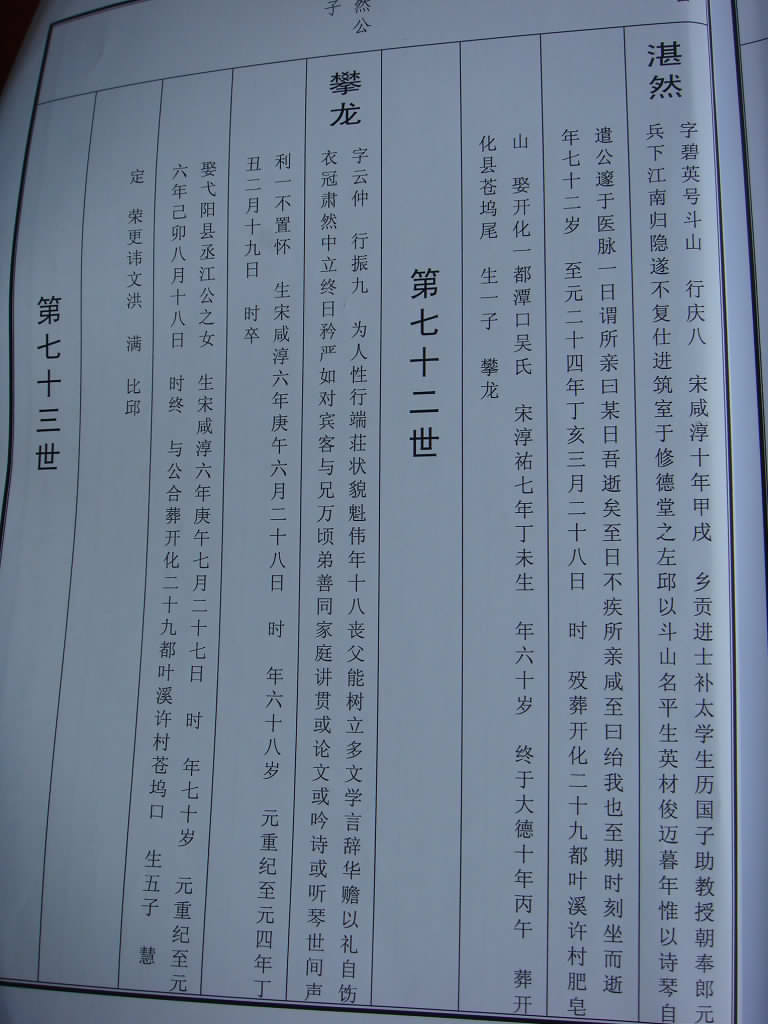 然公
子
湛然
字碧英号斗山 行庆八 宋咸淳十年甲戌 乡贡进士补太学生历国子助教授朝奉郎元
兵下江南归隐遂不复仕进筑室于修德堂之左邱以斗山名平生英材俊迈暮年惟以诗琴自
遣公邃于医脉一日谓所亲曰某日吾逝矣至日不疾所亲咸至曰绐我也至期时刻坐而逝
年七十二岁 至元二十四年丁亥三月二十八日 时 殁葬开化二十九都叶溪许村肥皂
山 娶开化一都潭口吴氏 宋淳祐七年丁未生 年六十岁 终于大德十年丙午 葬开
化县苍坞尾 生一子 攀龙
第七十二世
攀龙
字云仲 行振九 为人性行端荘状貌魁伟年十八丧父能树立多文学言辞华赡以礼自饬
衣冠肃然中立终日矜严如对宾客与兄万顷弟善同家庭讲贯或论文或吟诗或听琴世间声
利一不置怀 生宋咸淳六年庚午六月二十八日 时 年六十八岁 元重纪至元四年丁
丑二月十九日 时卒
娶弋阳县丞江公之女 生宋咸淳六年庚午七月二十七日 时 年七十岁 元重纪至元
六年己卯八月十八日 时终 与公合葬开化二十九都叶溪许村苍坞口 生五子 慧
定 荣更讳文洪 满 比邱
第七十三世